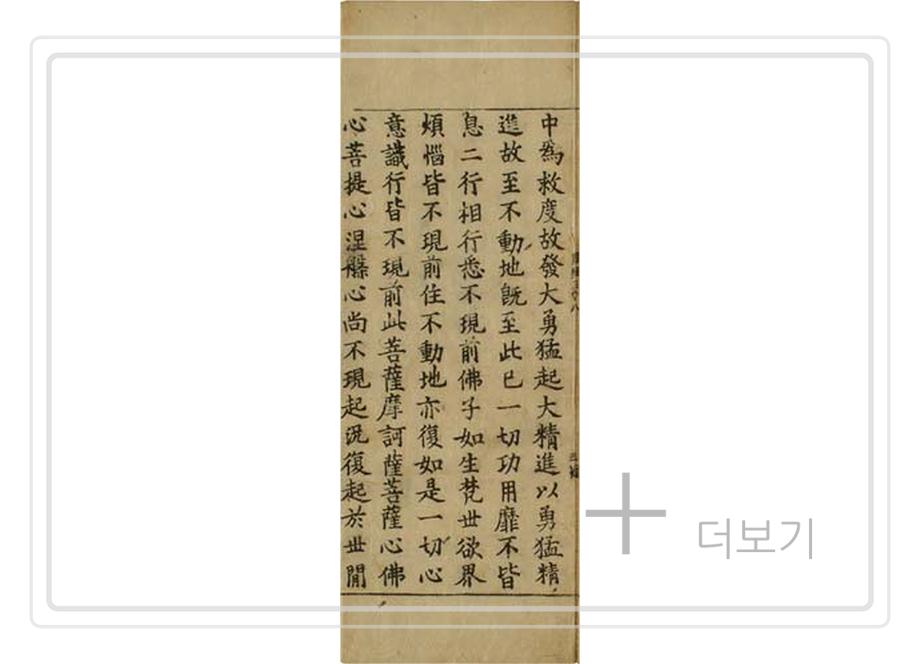 中爲救度故發大勇猛起大精進以勇猛精
進故至不動地旣至此已一切功用靡不皆
息二行相行悉不現前佛子如生梵世欲界
煩惱皆不現前住不動地亦復如是一切心
意識行皆不現前此菩薩摩訶薩菩薩心佛
心菩提心涅槃心尚不現起況復起於世間
더보기